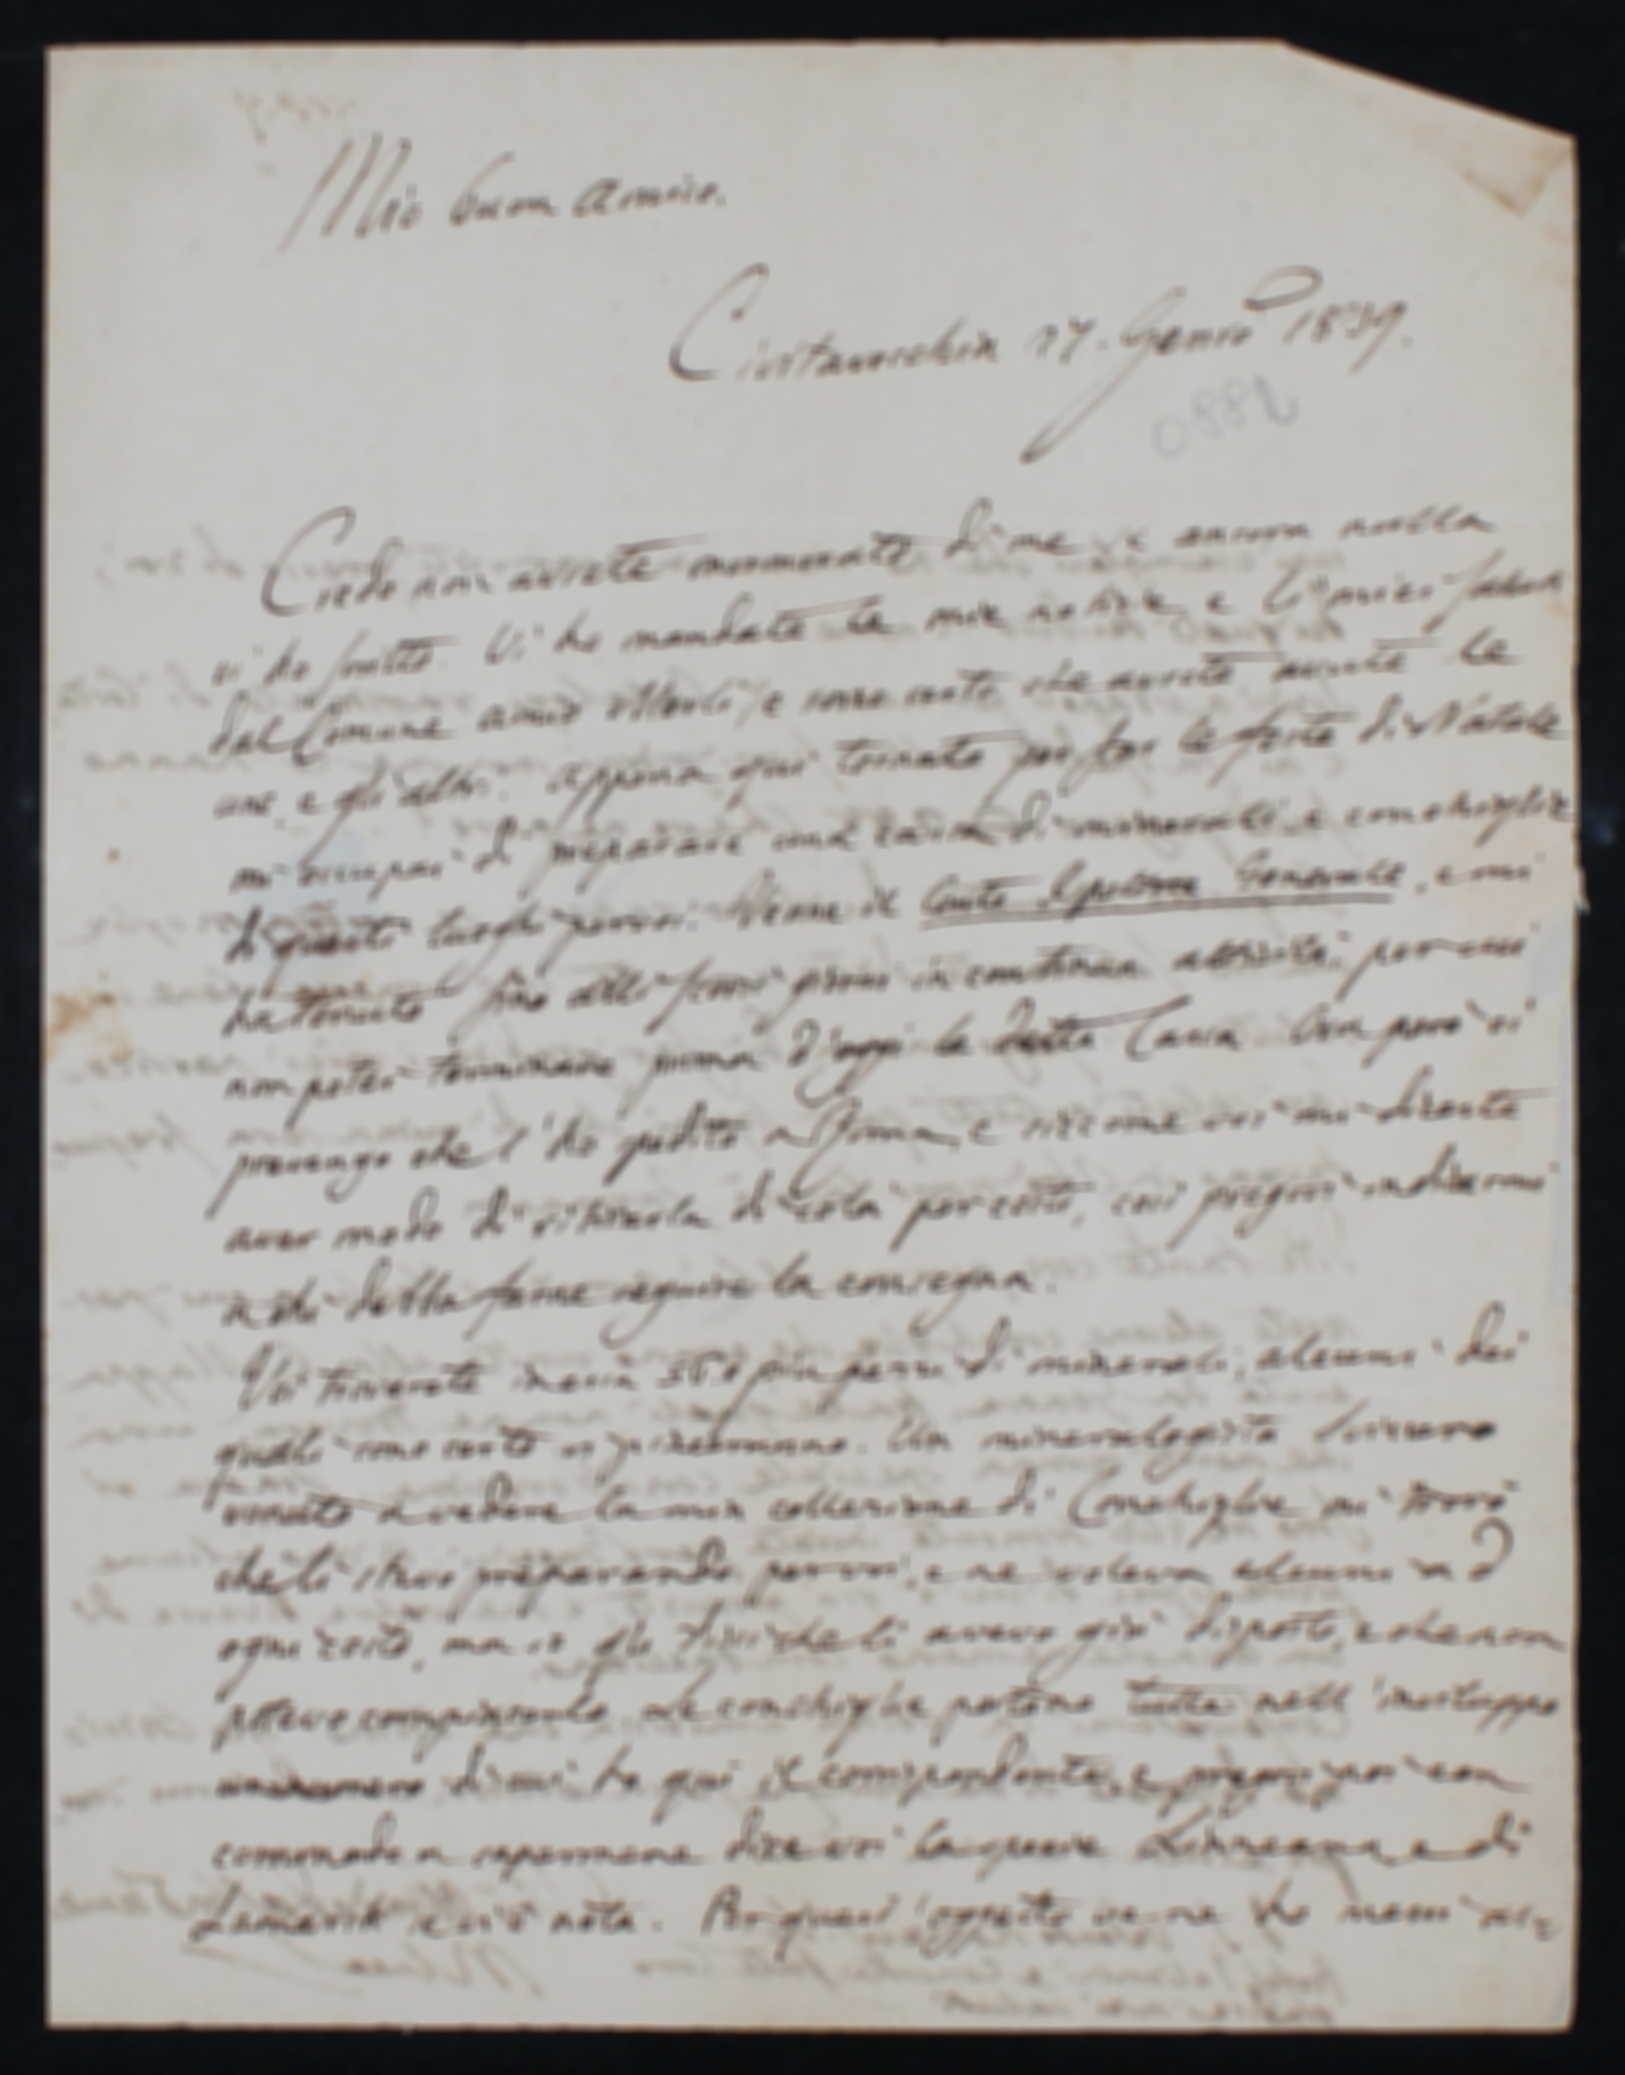 Mio buon Amico.
Civitavecchia 27. Genro 1839.
Credo non avrete mormorato di me, se ancora nulla
vi ho scritto. Vi ho mandate le mie notizie, e li miei saluti
dal Comune amico, e sono certo che avrete avute le
une, e gli altri. Appena qui tornato per far le feste di Natale
mi occupai di preparare una cassa di minerali, e conchiglie
di questi luoghi per voi. Venne il Conte Ispettore Generale, e mi
ha tenuto fino alli scorsi giorni in continua attività; per cui
non potei terminare prima d'oggi la detta Cassa. Ora però vi
prevengo che l'ho spedita a Roma, e siccome voi mi diceste
aver modo di ritirarla di colà per costì, così pregovi indicarmi
a chi debba farne seguire la consegna.
Voi troverete in essa più pezzi di minerali, alcuni dei
quali sono certo vi piaceranno. Un mineralogista Svizzero
venuto a vedere la mia collezione di Conchiglie mi trovò
che li stavo preparando per voi, e ne voleva alcuni ad
ogni costo, ma io gli dissi che li avevo già disposti, e che non
potevo compiacerlo. Le conchiglie portano tutte nell'inviluppo
un numero di cui ho qui il corrispondente, e pregovi poi con
commodo a sapermene dire voi la specie Linneana, e di
Lamarck se vi è nota. Per quest'oggetto ve ne ho messi